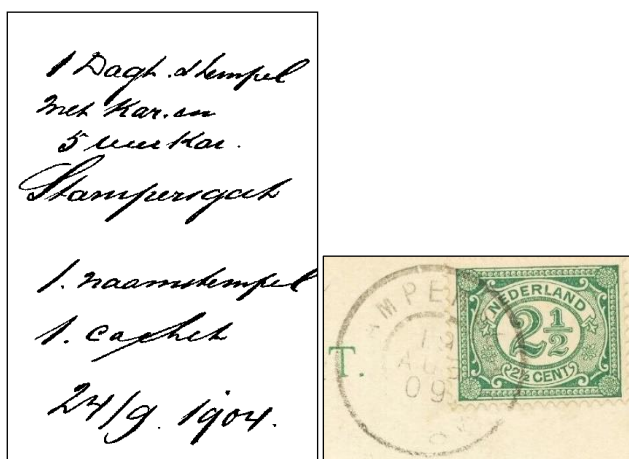 1 Dagt. stempel
met Kar. en
5 uur Kar.
Stampersgat
1. naamstempel
1. cachet
24/9. 1904.
AMPE
NEDERLAND
2½
2½ CENT
19
AUG
09
T.